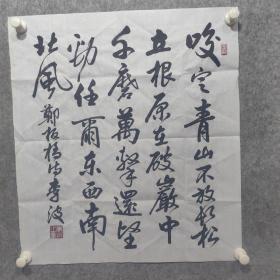 咬定青山不放松
立根原在破巖中
千磨萬擊還堅
勁任爾东西南
北風 鄭板橋诗李波